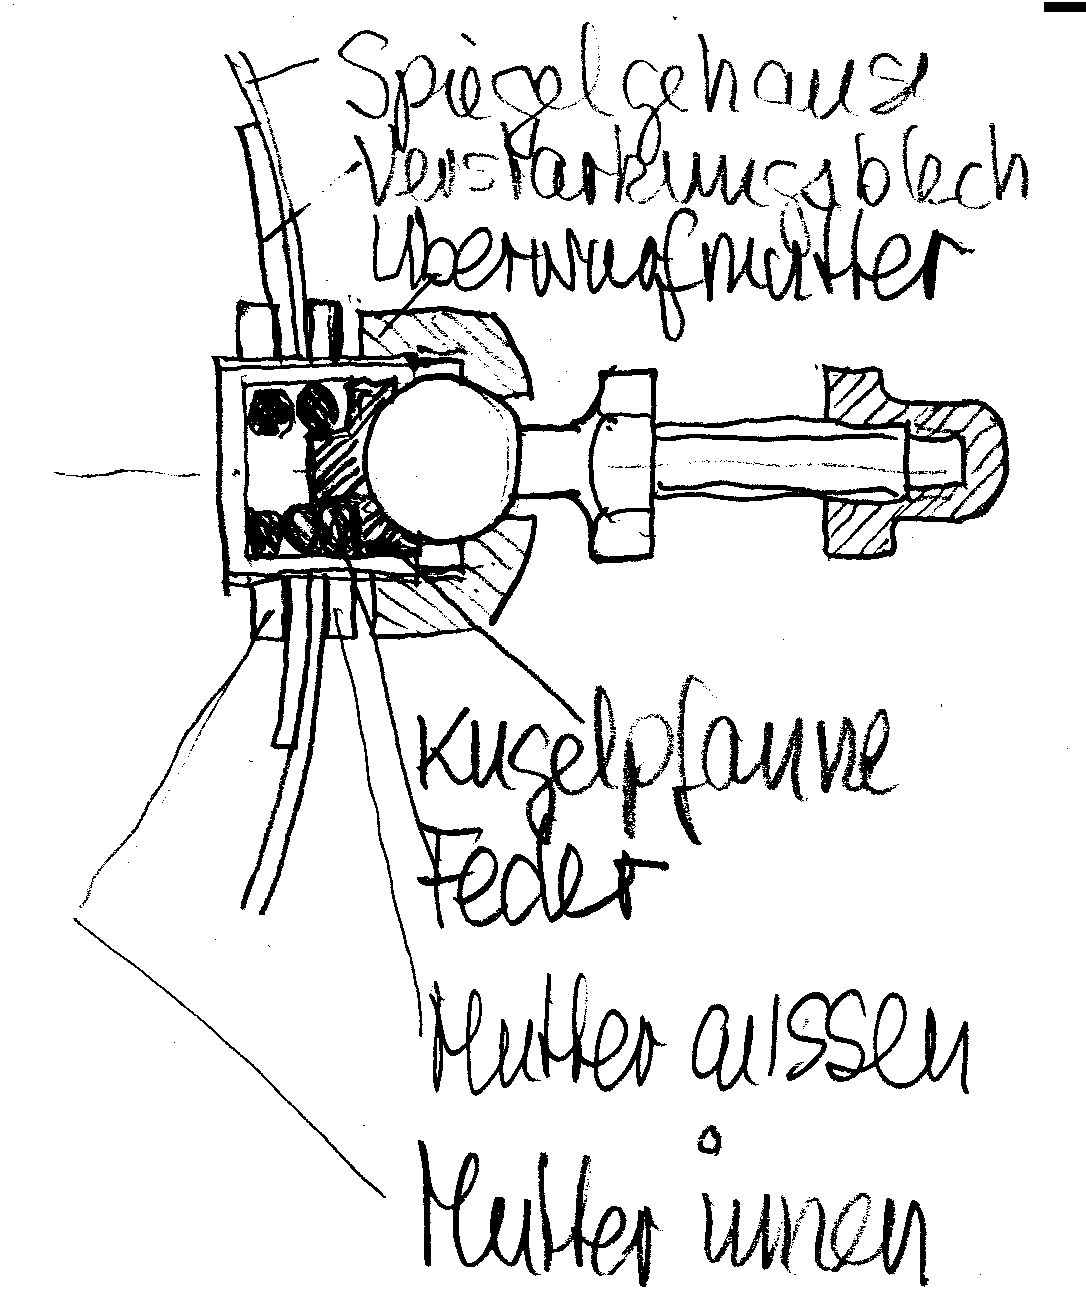 Spiegelgehäuse
Verstärkungsblech
Überwurfmutter
Kugelpfanne
Feder
Mutter aussen
Mutter innen